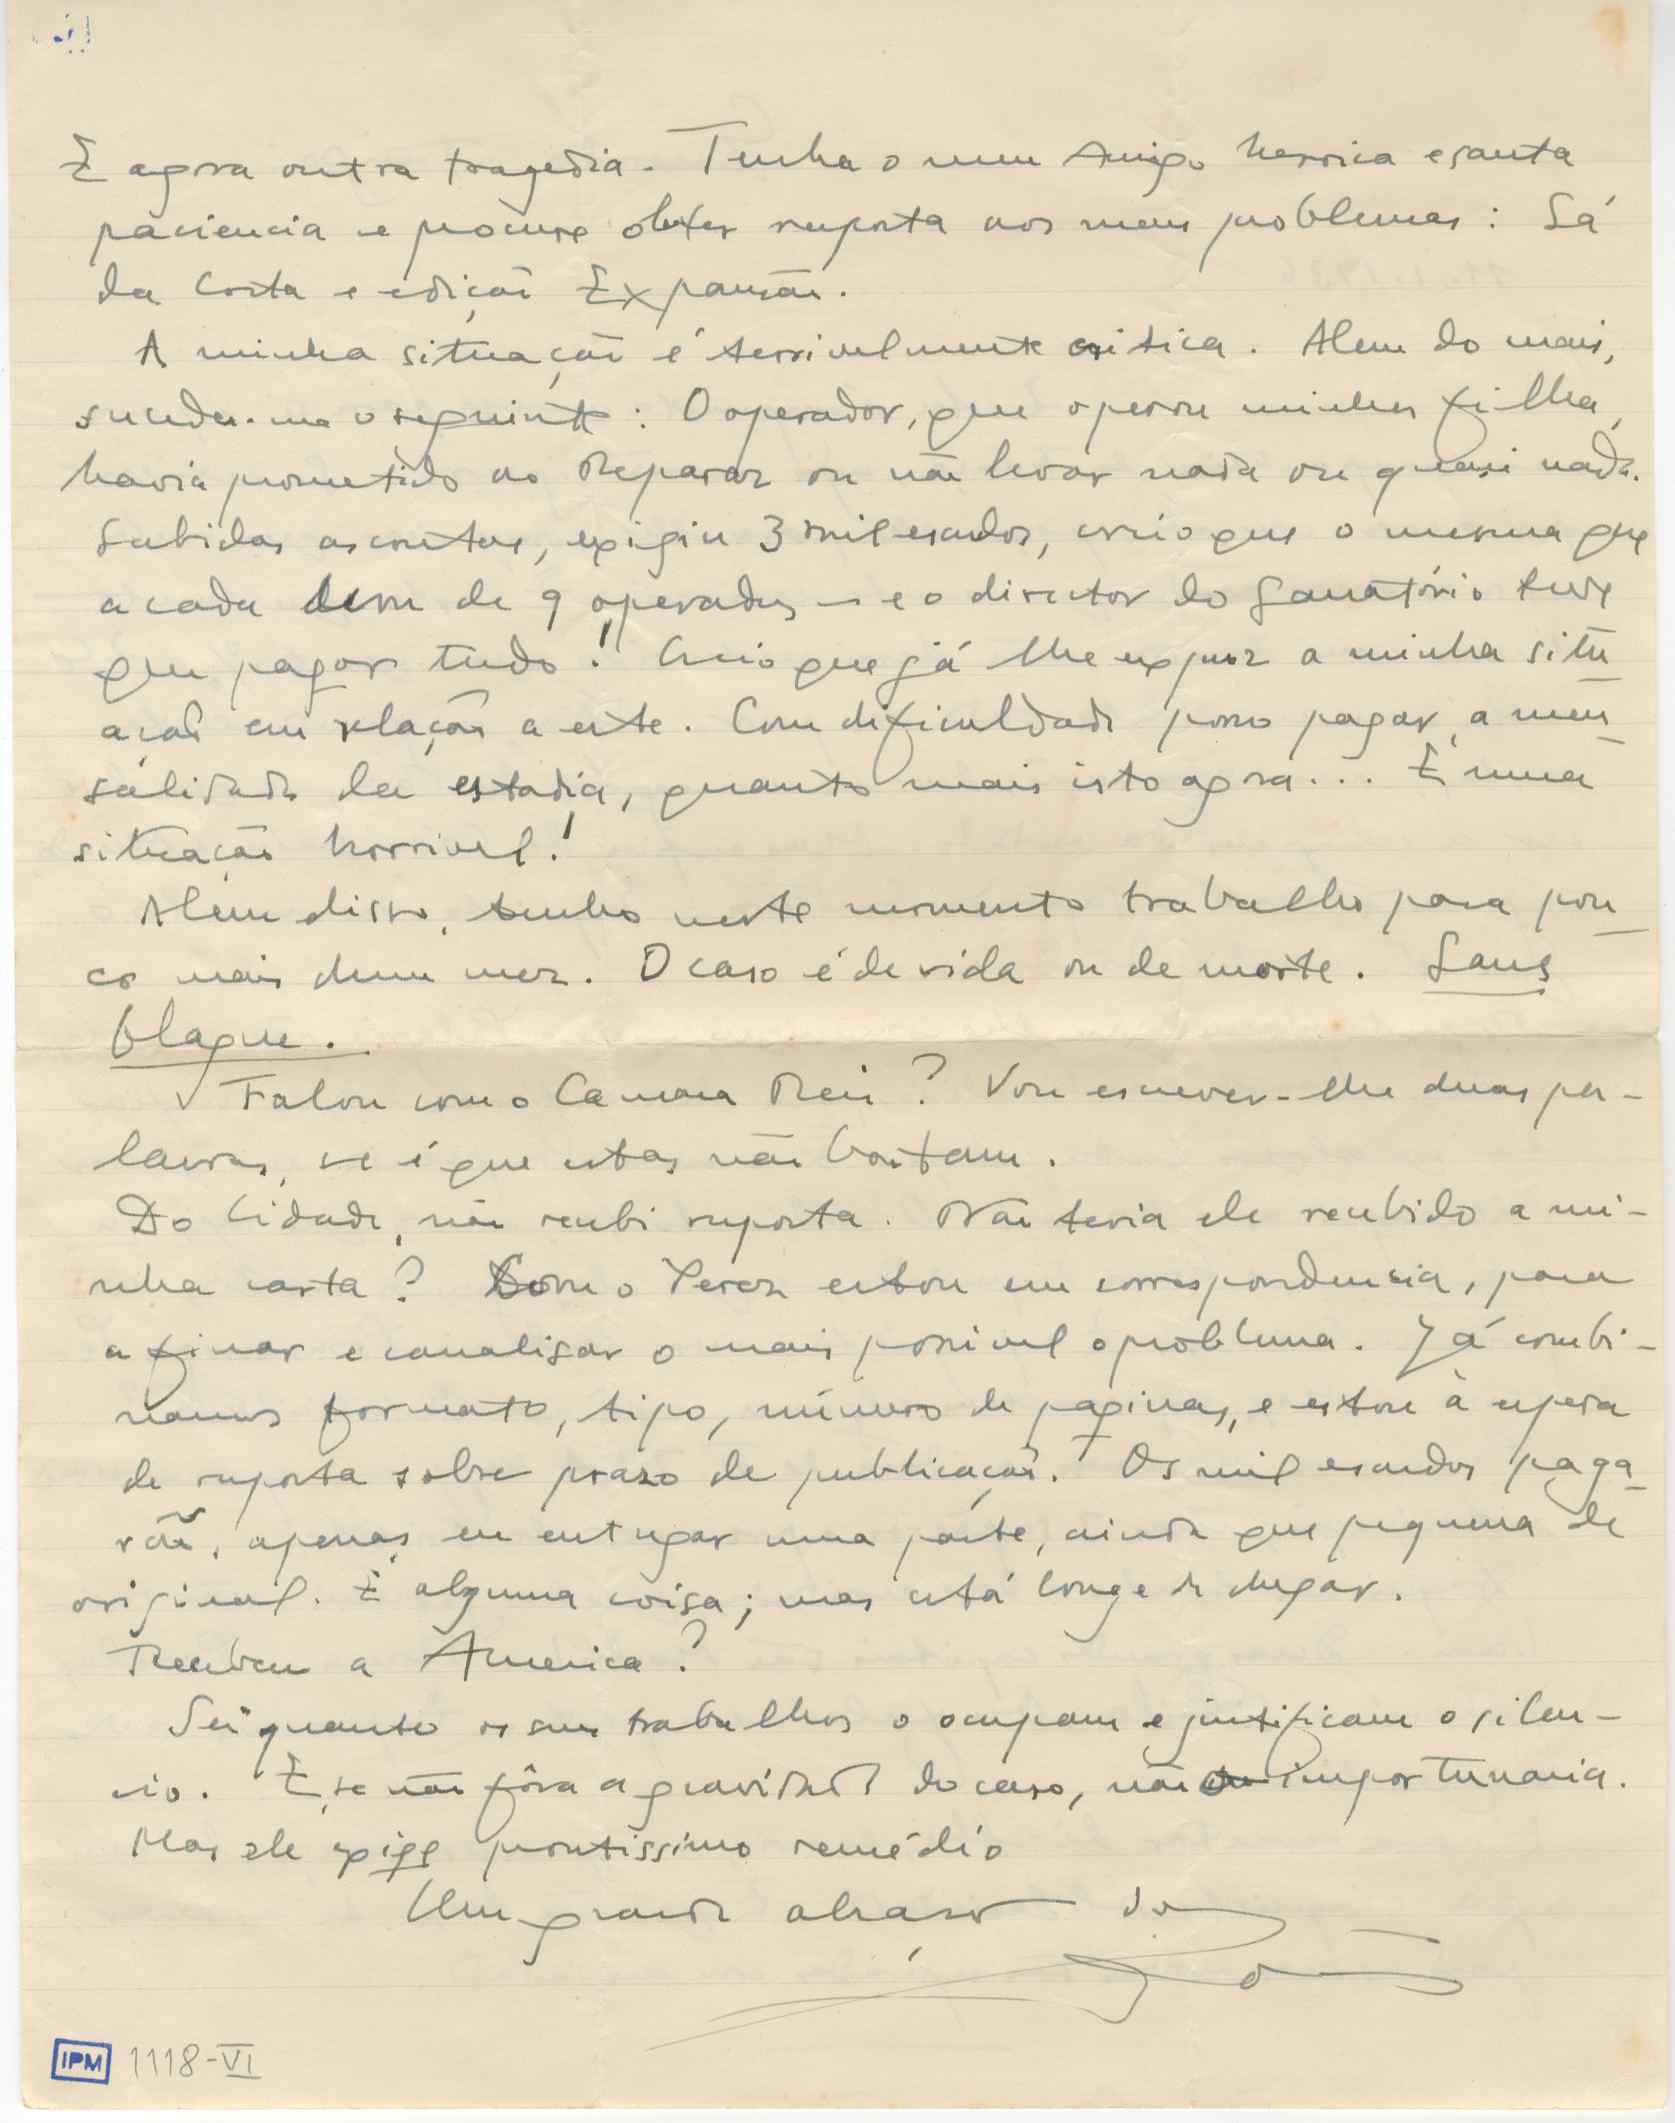 E agora outra tragedia. Tenha o meu Amigo heroica e santa
paciencia e procure obter resposta aos meus problemas: Sá
da Costa e edição Expansão.
A minha situação é terrivelmente critica. Alem do mais,
sucedeu-me o seguinte: O operador, que operou minha filha,
havia prometido ao Reparaz ou não levar nada ou quasi nada.
Sabidas as contas, exigiu 3 mil escudos, creio que o mesmo que
a cada um de 9 operados — e o director do Sanatório teve
que pagar tudo! Creio que já lhe expuz a minha situ-
ação em relação a este. Com dificuldade posso pagar a men-
salidade da estadia, quanto mais isto agora... É uma
situação horrivel!
Alem disso, tenho neste momento trabalho para pou-
co mais dum mez. O caso é de vida ou de morte. Sans
blague.
Falou com o Camara Reis? Vou escrever-lhe duas pa-
lavras, se é que estas não bastam.
Do Cidade, não recebi resposta. Não teria ele recebido a mi-
nha carta? Com o Perez estou em correspondencia, para
afinar e canalisar o mais possivel o problema. Já combi-
namos formato, tipo, número de paginas, e estou à espera
de resposta sobre prazo de publicação. Os mil escudos paga-
rão, apenas eu entregar uma parte, ainda que pequena de
original. É alguma coisa; mas está longe de chegar.
Recebeu a America?
Sei quanto os seus trabalhos o ocupam e justificam o silen-
cio. E, se não fôra a gravidade do caso, não importunaria.
Mas ele exige prontissimo remédio
Um grande abraço do
IPM 1118-VI